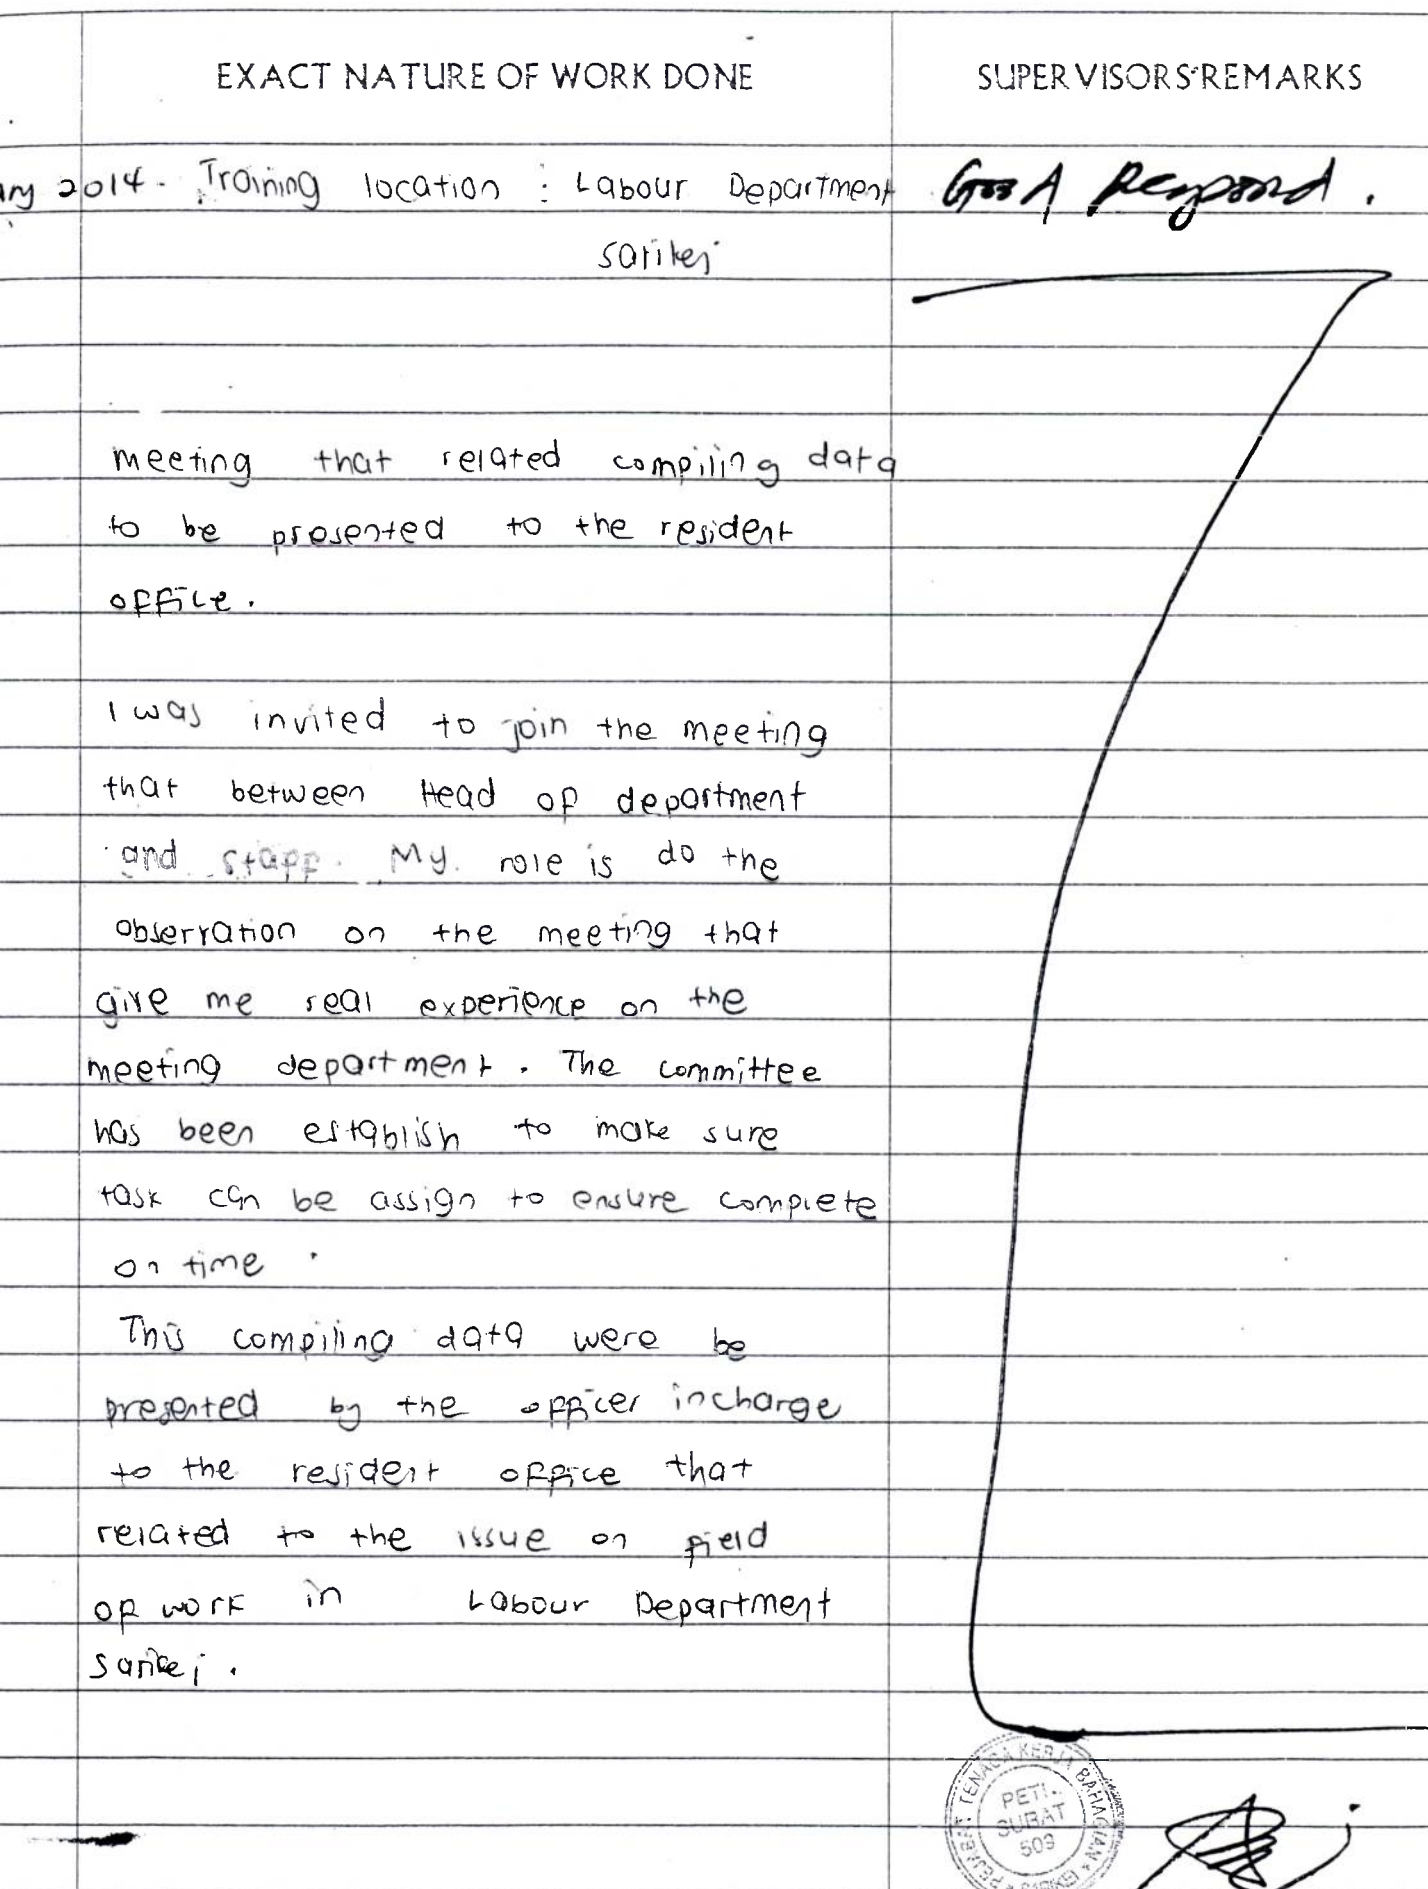 EXACT NATURE OF WORK DONE
SUPERVISORS' REMARKS
2014. Training location : Labour Department
Good Respond.
Sarikei
meeting that related compiling data
to be presented to the resident
office.
I was invited to join the meeting
that between Head of department
and staff. My role is do the
observation on the meeting that
give me real experience on the
meeting department. The committee
has been establish to make sure
task can be assign to ensure complete
on time.
This compiling data were be
presented by the officer incharge
to the resident office that
related to the issue on field
of work in Labour Department
Sarikei.
PEJABAT TENAGA KERJA BAHAGIAN
PETI
SURAT
503